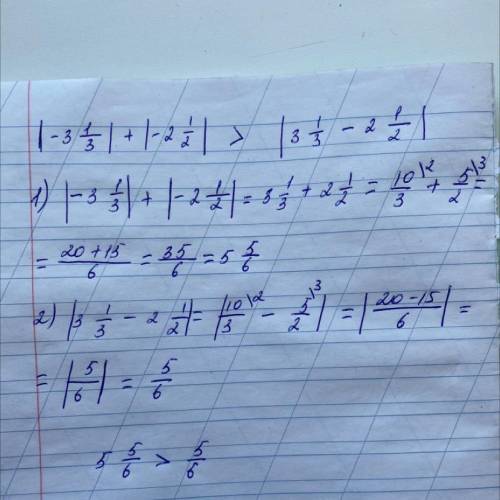 |-3 1/3| + |-2 1/2| > |3 1/3 - 2 1/2|
1) |-3 1/3| + |-2 1/2| = 3 1/3 + 2 1/2 = 10/3 \2 + 5/2 \3 =
= (20+15)/6 = 35/6 = 5 5/6
2) |3 1/3 - 2 1/2| = |10/3 \2 - 5/2 \3| = |(20-15)/6| =
= |5/6| = 5/6
5 5/6 > 5/6